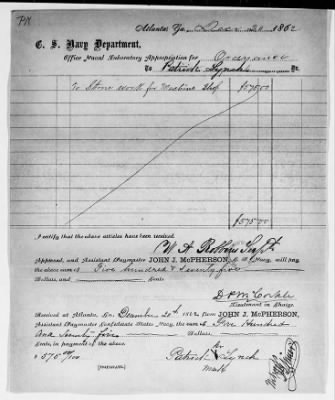 PM
Atlanta Ga. Decr 20 1862
C. S. Navy Department,
Office Naval Laboratory Appropriation for Ordnance
To Patrick Lynch Dr.
To Stone work for Machine Shop $575.00
$575.00
I certify that the above articles have been received.
W A Robbins Supt.
Approved, and Assistant Paymaster JOHN J. McPHERSON, C. S. Navy, will pay
the above sum of Five hundred & Seventy five
Dollars, and Cents.
D P McCorkle
Lieutenant in Charge.
Received at Atlanta, Ga. December 20th 1862, from JOHN J. McPHERSON,
Assistant Paymaster Confederate States Navy, the sum of Five Hundred
And Seventy five Dollars, and
Cents, in payment of the above
$ 575 00/100 Patrick Lynch
[DUPLICATE.] Mark